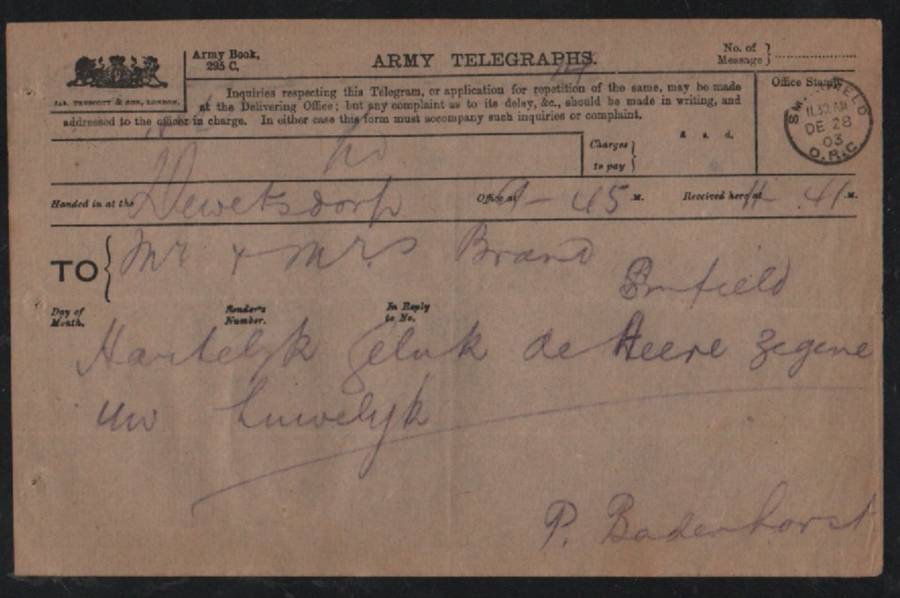 Army Book,
295 C.
ARMY TELEGRAPHS.
No. of
Message
JAS. TRUSCOTT & SON, LONDON.
Inquiries respecting this Telegram, or application for repetition of the same, may be made
at the Delivering Office; but any complaint as to its delay, &c., should be made in writing, and
addressed to the officer in charge. In either case this form must accompany such inquiries or complaint.
Office Stamp.
SM FIELD
11.30 AM
DE 28
03
O.R.C
Charges
to pay
£ s. d.
Handed in at the Dewetsdorp Office at 9-45 M. Received here at 11-41 M.
TO Mr & Mrs Brand
Smfield
Day of
Month.
Sender's
Number.
In Reply
to No.
Hartelyk geluk de Heere zegene
uw huwelyk
P. Badenhorst